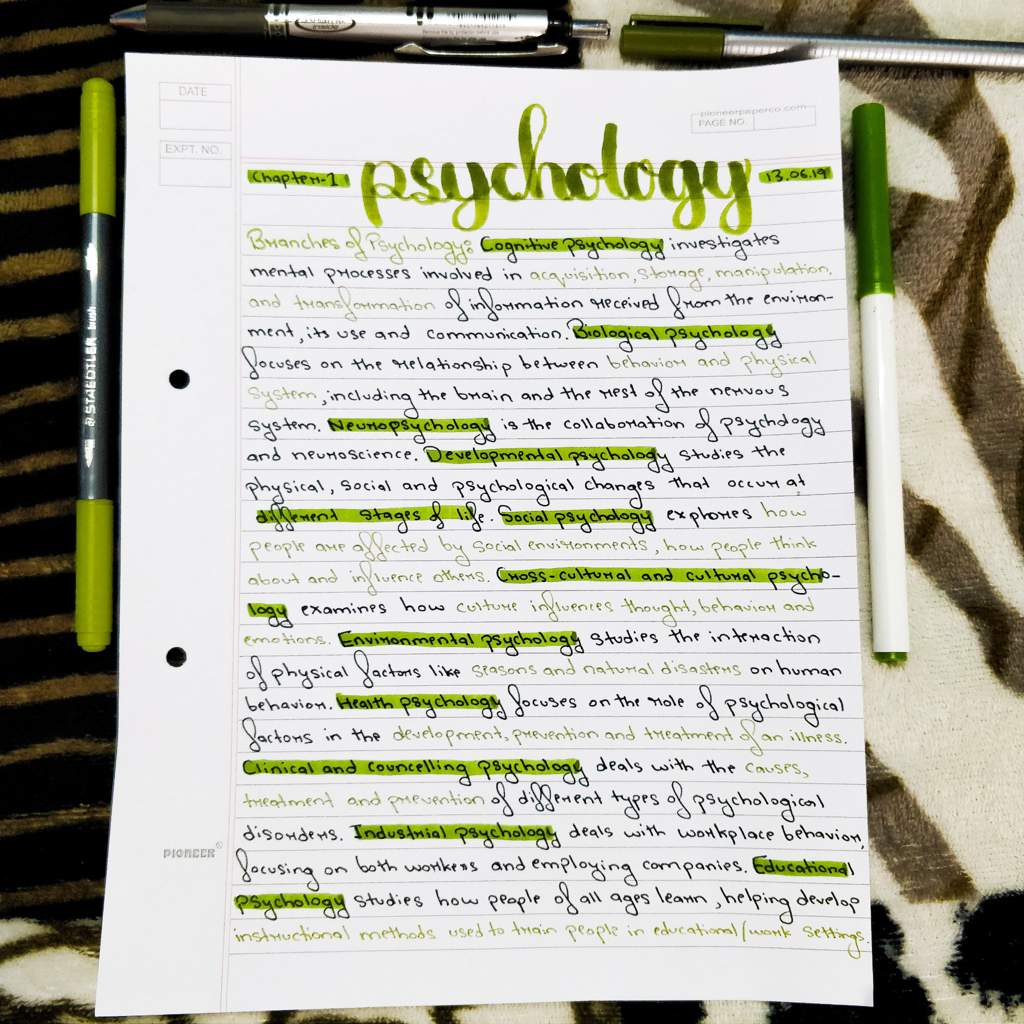 DATE
EXPT. NO.
pioneerpaperco.com
PAGE NO.
Chapter-1
psychology
13.06.19
Branches of Psychology: Cognitive psychology investigates
mental processes involved in acquisition, storage, manipulation,
and transformation of information received from the environ-
ment, its use and communication. Biological psychology
focuses on the relationship between behavior and physical
system, including the brain and the rest of the nervous
system. Neuropsychology is the collaboration of psychology
and neuroscience. Developmental psychology studies the
physical, social and psychological changes that occur at
different stages of life. Social psychology explores how
people are affected by social environments, how people think
about and influence others. Cross-cultural and cultural psycho-
logy examines how culture influences thought, behavior and
emotions. Environmental psychology studies the interaction
of physical factors like seasons and natural disasters on human
behavior. Health psychology focuses on the role of psychological
factors in the development, prevention and treatment of an illness.
Clinical and councelling psychology deals with the causes,
treatment and prevention of different types of psychological
disorders. Industrial psychology deals with workplace behavior,
focusing on both workers and employing companies. Educational
psychology studies how people of all ages learn, helping develop
instructional methods used to train people in educational/work settings.
PIONEER
STAEDTLER brush